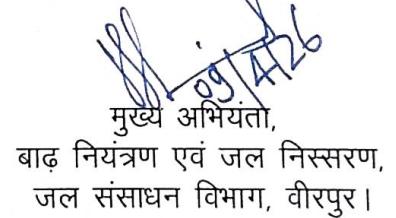 09/4/26
मुख्य अभियंता,
बाढ़ नियंत्रण एवं जल निस्सरण,
जल संसाधन विभाग, वीरपुर।